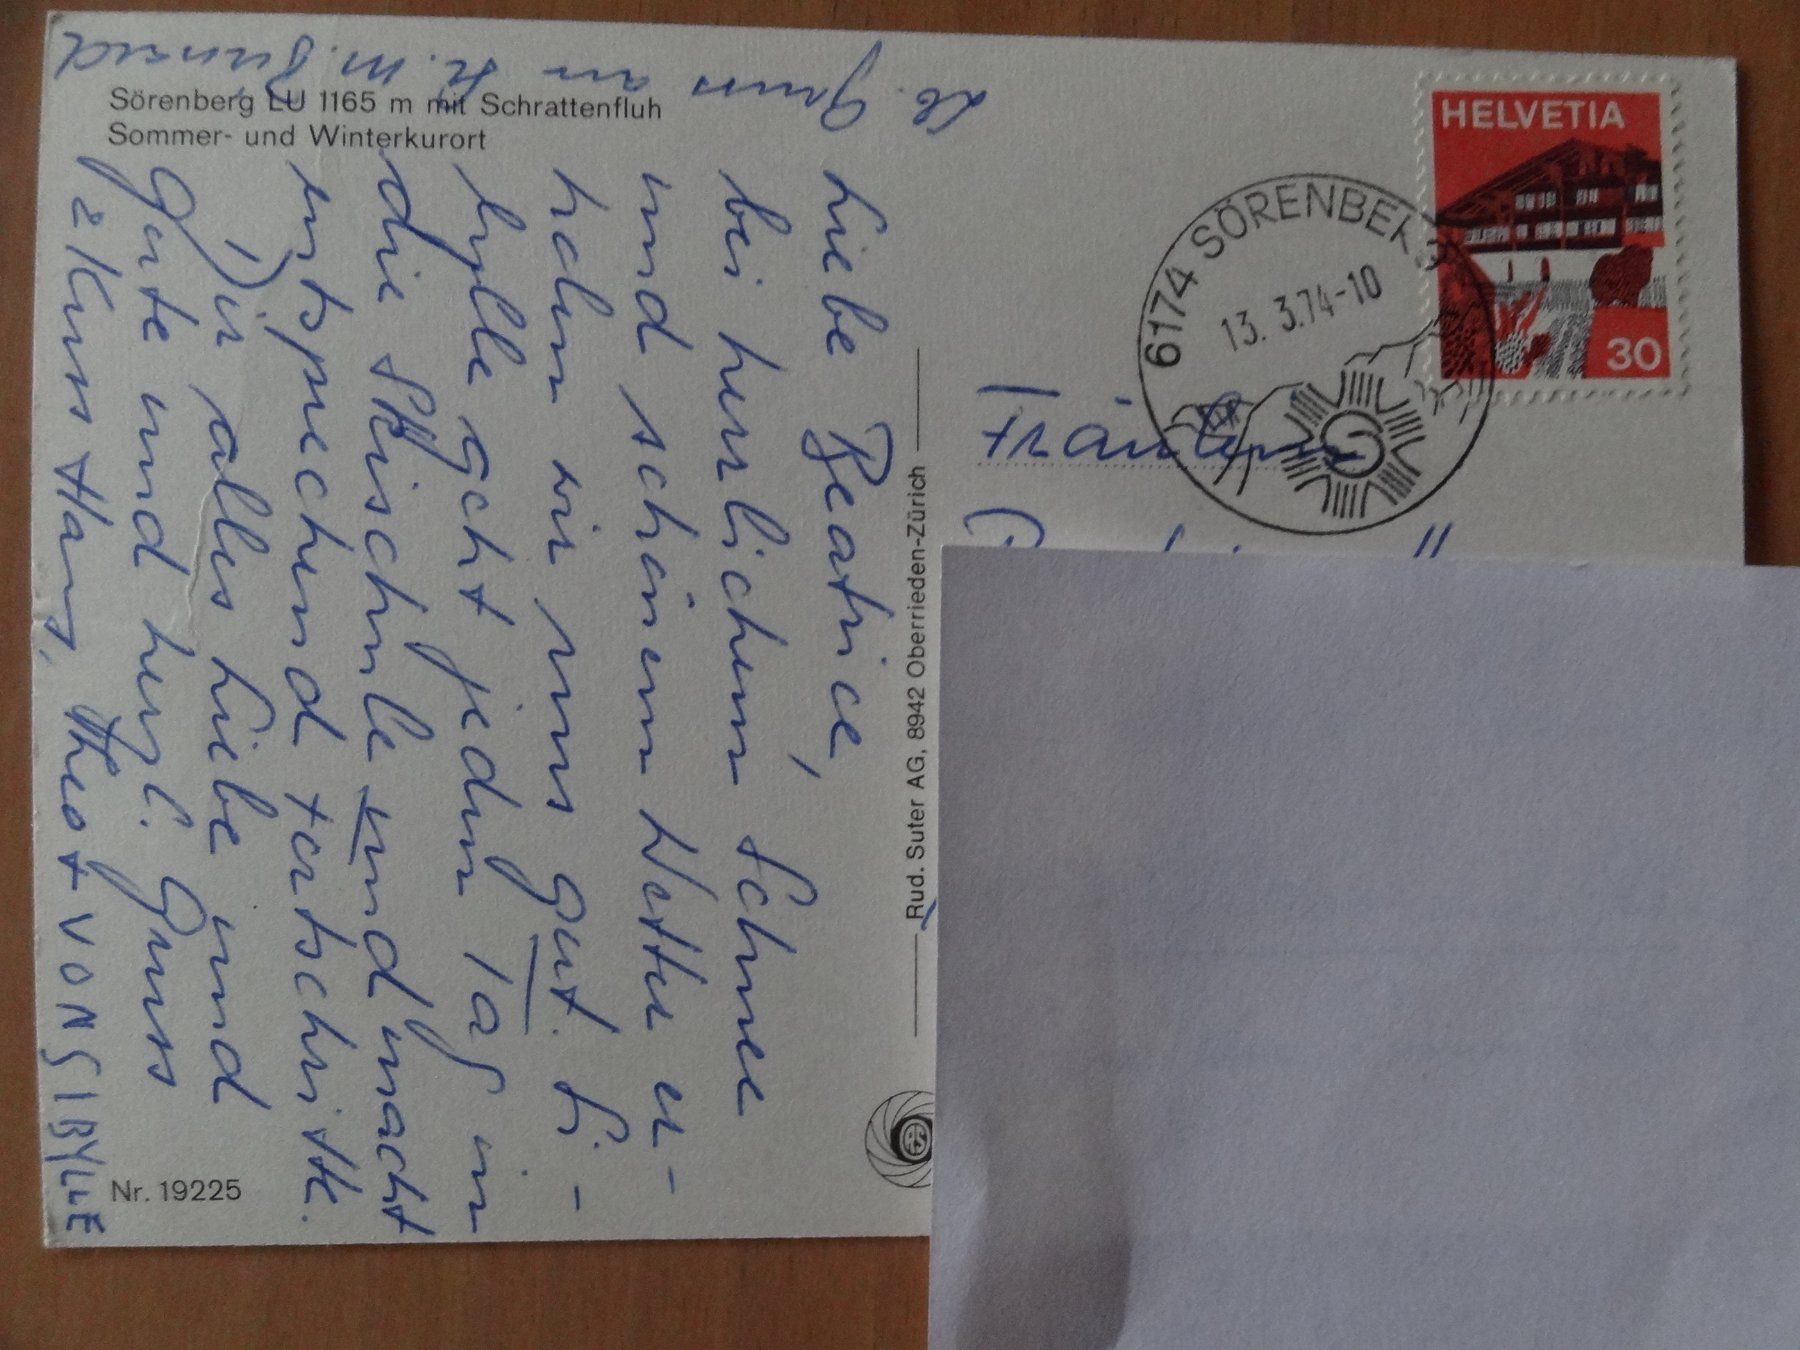 Sörenberg LU 1165 m mit Schrattenfluh
Sommer- und Winterkurort
Liebe Beatrice,
bei herrlichem Schnee
und schönem Wetter er-
holen wir uns gut. Si-
bylle geht jeden Tag in
die Skischule und macht
entsprechend Fortschritte.
Dir alles Liebe und
Gute und herzl. Gruss
2 Kuss Hans, Theo + VON SIBYLLE
Lb. Gruss an H. M.
Rud. Suter AG, 8942 Oberrieden-Zürich
Nr. 19225
HELVETIA
30
6174 SÖRENBERG
13. 3.74-10
Fräulein